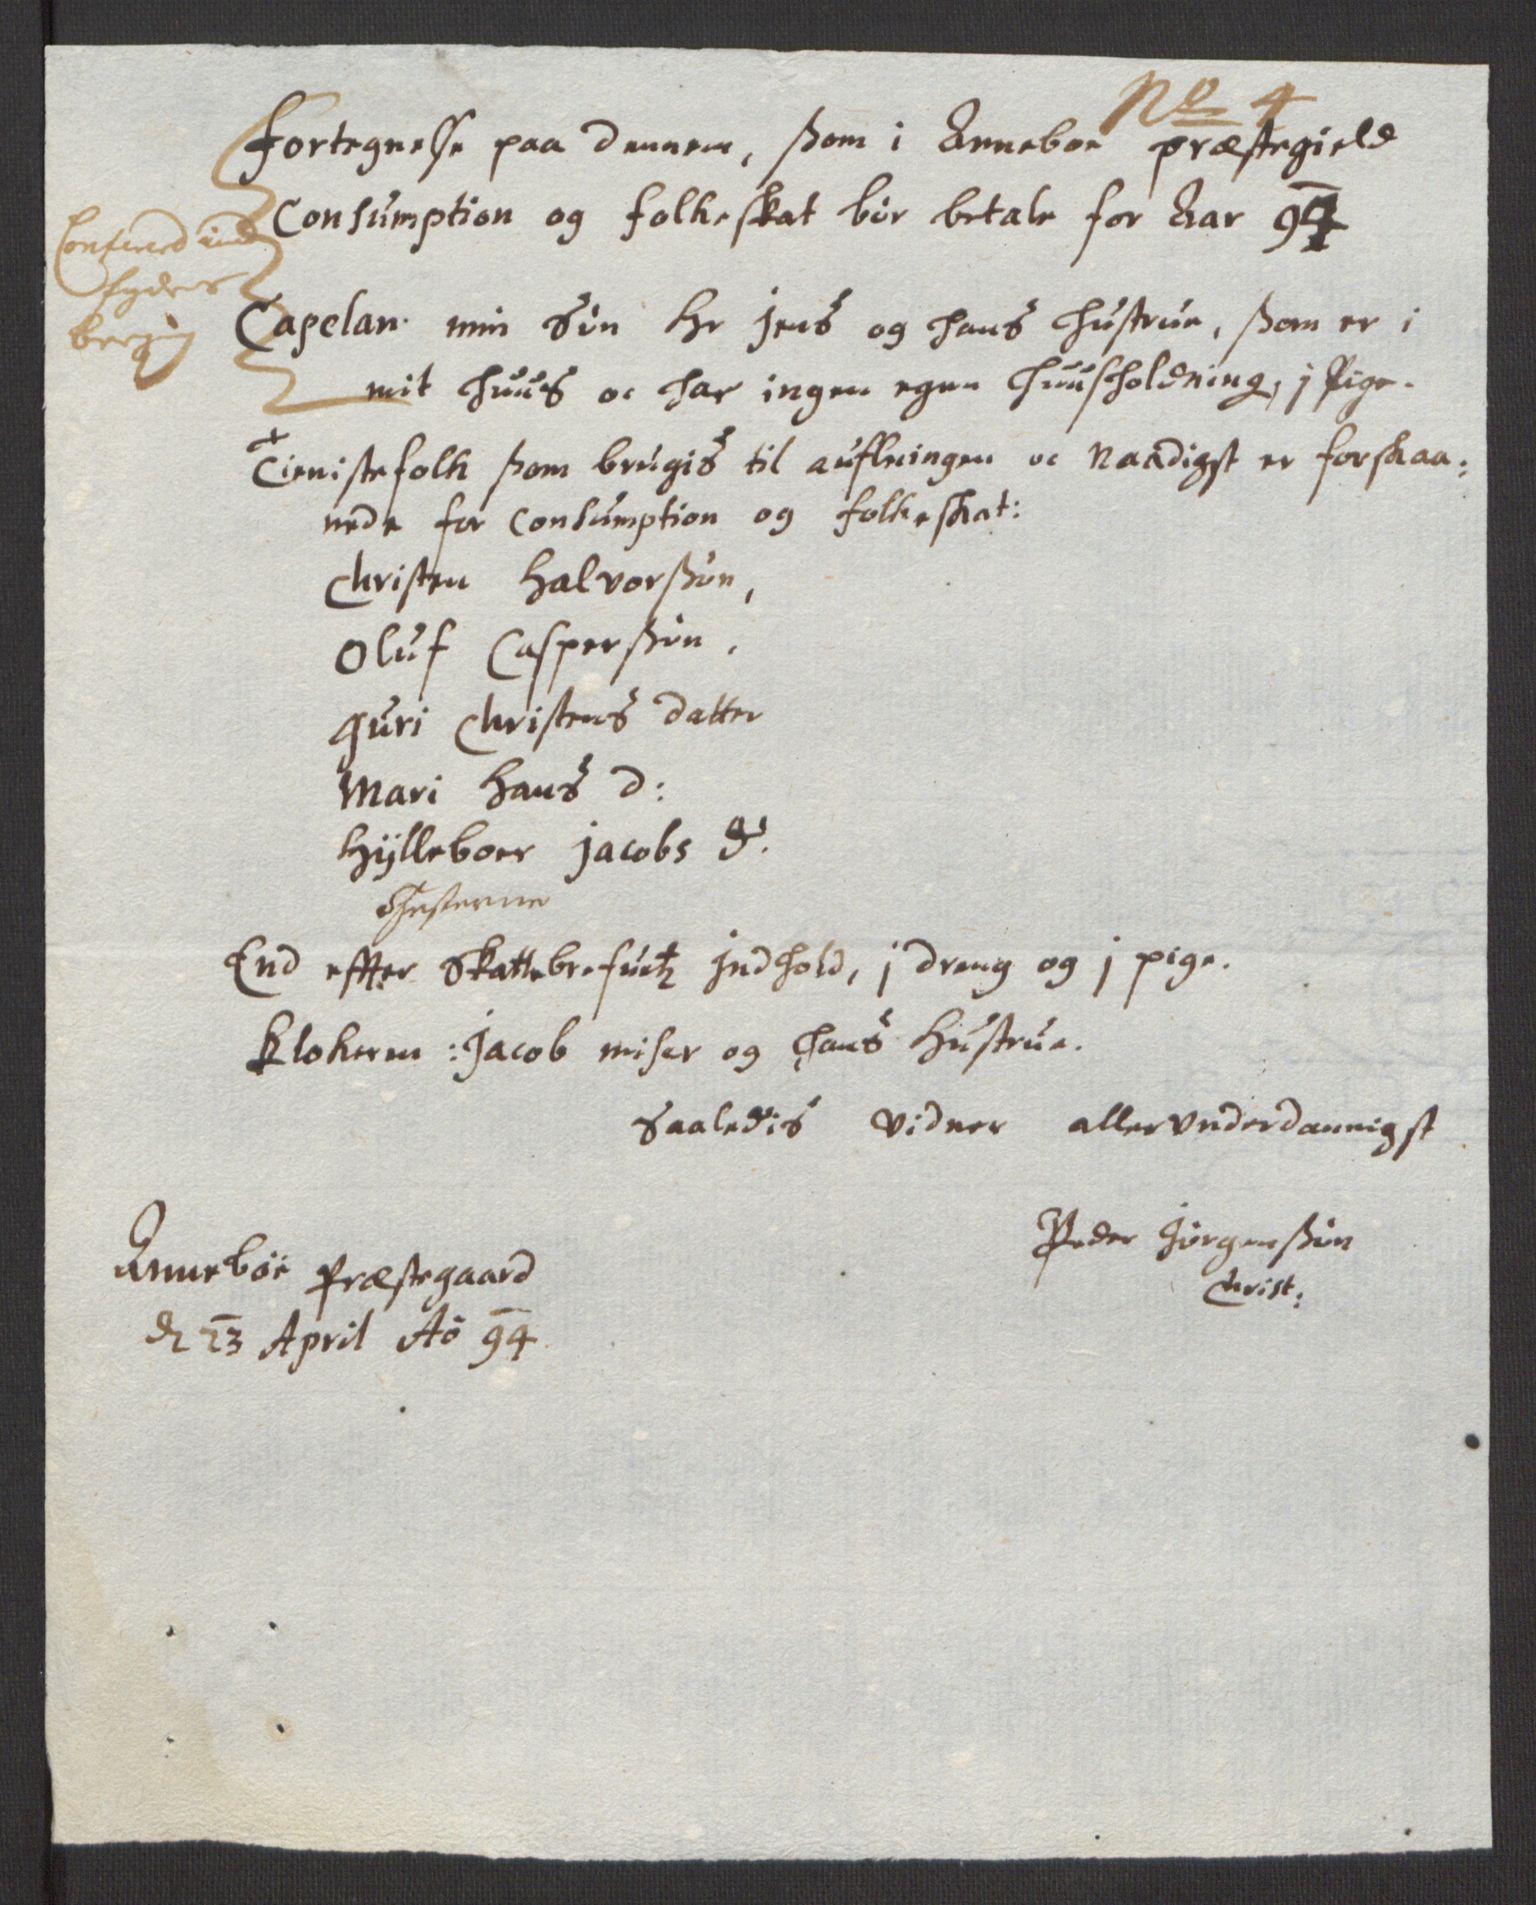 No 4
Fortegnelse paa dennem, som i Anneboe præstegield
Consumption og folkeskat bör betale for Aar 94
Capelan min Sön Hr Jens og hans hustrue, som er i
mit huus oc har ingen egen huusholdning, j Pige.
Tienistefolk som brugis til auflingen oc naadigst er forskaa:
nede for Consumption og folkeskat:
Christen Halvorssön,
Oluf Casperssön,
Guri Christens datter
Mari Hans d:
Hÿlleboer Jacobs d.
End effter Skattebrefuetz Indhold, j dreng og j pige.
Klokeren: Jacob miser og hans Hustrue.
Saaledis vidner allervnderdannigst
Peder Jörgenssön
Christ:
Anneböe Præstegaard
d 23 April Ao 94